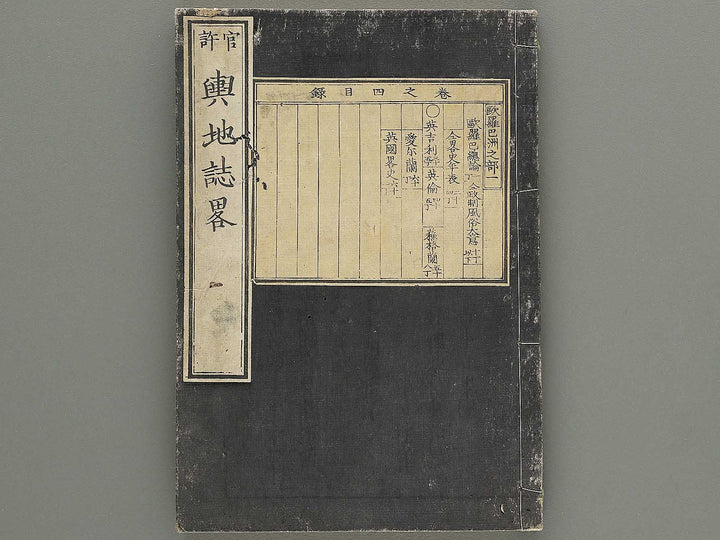 官許
輿地誌畧
卷之四目錄
歐羅巴洲之部一
歐羅巴總論
仝政制風俗大旨
仝畧史年表
○英吉利
英倫
蘇格蘭
愛尓蘭
英國畧史